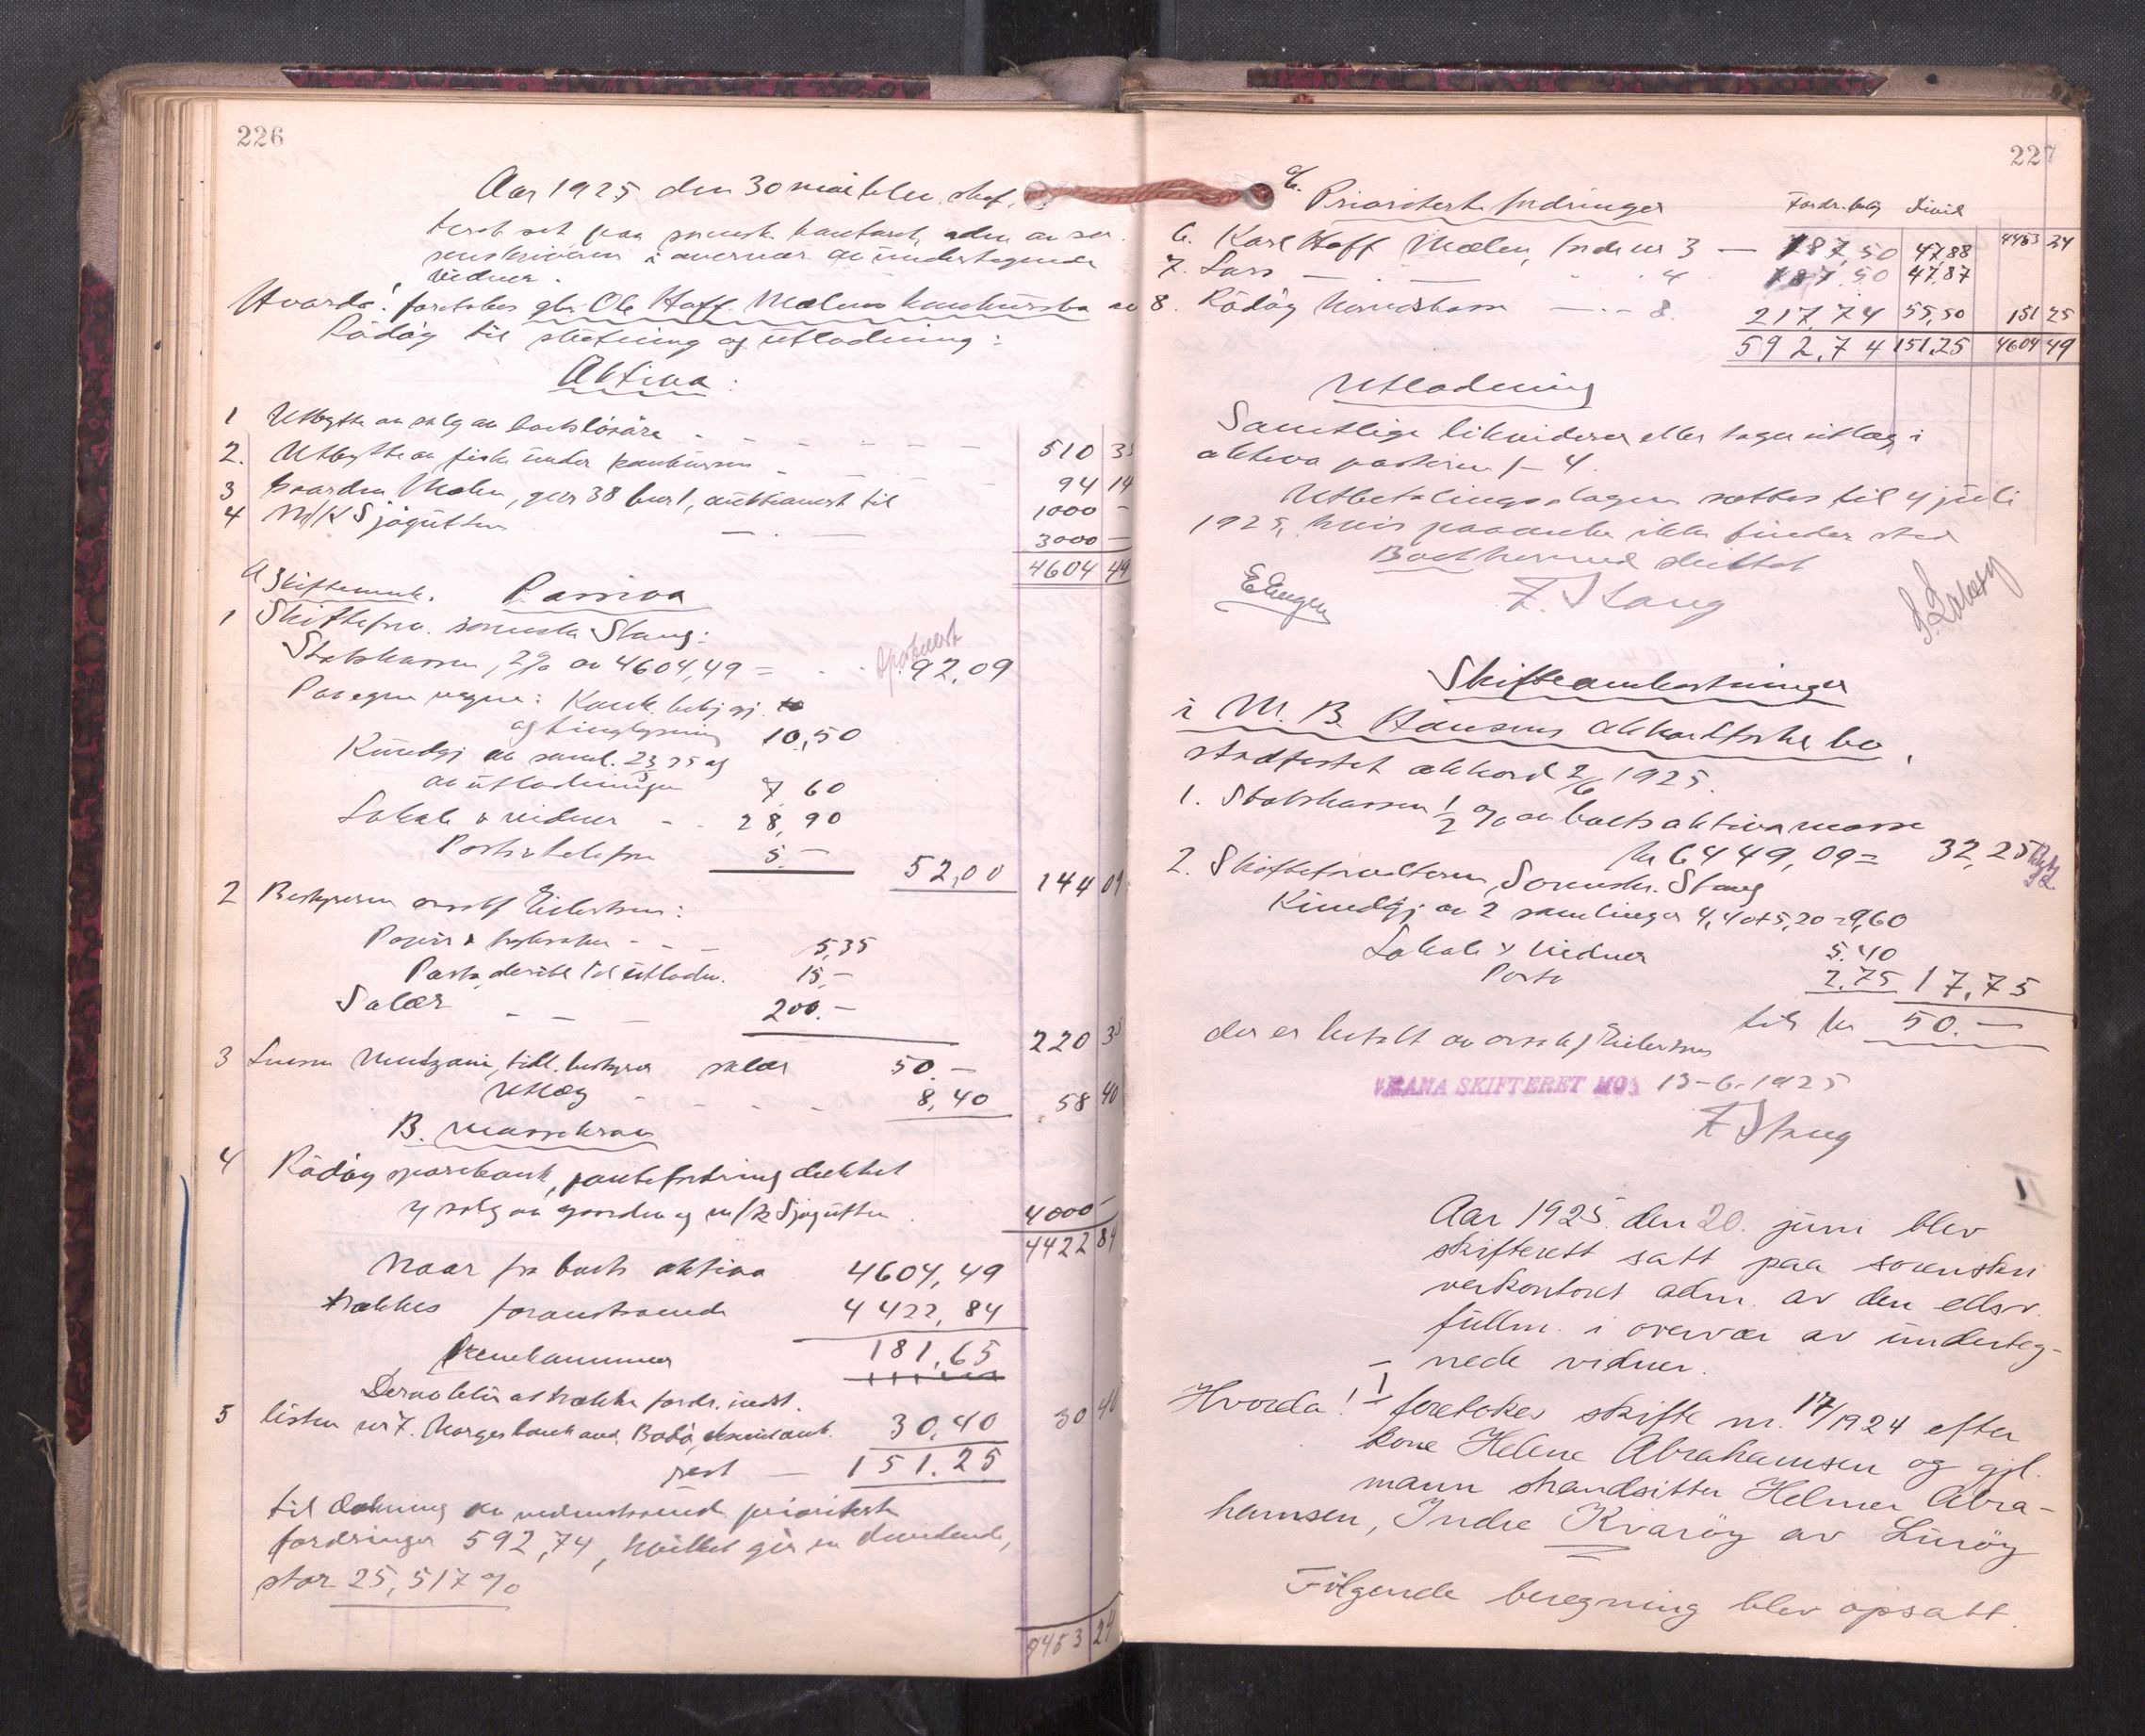 226
Aar 1925 den 30 mai blev skif-
teret sat paa sorensk. kontoret, adm. av so-
renskriveren i overvær av undertegnede
vidner.
Hvorda! foretokes gbr. Ole Hoff Mælens konkursbo av
Rödöy til slutning og utlodning:
Aktiva:
1 Utbytte av salg av boets lösöre - - - - - 510 35
2. Utbytte av fiske under konkursen - 94 14
3 Gaarden Mælen, gnr 38 bnr 1, auktionert til 1000 -
4 M/K Sjögutten — . — 3000 -
4604 49
A Skifteomk. Passiva
1 Skifteforv. sorenskr. Stang:
Statskassen, 2% av 4604,49 = . . 92,09
Paa egne vegne: Konk. bekjgj.
og tinglysning 10,50
Kundgj. av saml. 23/5 25 og
av utlodningen 7 60
Lokale & vidner - . . 28,90
Porto & telefon 5.- 52,00 144 09
2 Bestyreren orsakf. Eilertsen:
Papir & - - - 5,35
Porto, desibl. til utlodn. 15,-
Salær - - - 200.-
220 35
3 Lensm. tidl. bestyrer salær 50.-
Utlæg - - - - 8,40 58 40
B. Massekrav
4 Rödöy sparebank, pantefordring dækket
v/ salg av gaarden og m/k Sjögutten . 4000 -
4422 84
Naar fra boets aktiva 4604,49
trækkes foranstaaende 4422,84
fremkommer 181,65
Derav blir at trække fordr. indst.
5 listen nr 7. Norges bank avd. Bodö, 30,40 30 40
rest — 151.25
til dækning av nedenstaaende prioriterte
fordringer 592,74, hvilket gir en dividende,
stor 25,517%
4453 24
227
C. Prioriterte fordringer Fordr. belöp Divid
4453 24
6. Karl Hoff Mælen, fordr nr 3 — 187,50 47,88
7. Lars — — " . 4 187,50 47,87
8. Rödöy — . - 8. 217,74 55,50 151 25
592,74 151,25 4604 49
Utlodning
Samtlige likviderer eller tager utlæg i
aktiva posterne 1-4.
Utbetalingsdagen sættes til 4 juli
1925, hvis paaanke ikke finder sted
Boet hermed sluttet
F. Stang
Skifteomkostninger
i M. B. Hansens akkordsöker bo,
stadfestet akkord 2/6 1925.
1. Statskassen 1/2 % av boets aktivamasse
kr 6449,09 = 32,25
2. Skifteforvalteren, Sorenskr. Stang
Kundgj av 2 samlinger 4,40+5,20=9,60
Lokale & vidner 5.40
Porto 2.75 17,75
tils kr 50.-
der er betalt av orsakf Eilertsen
RANA SKIFTERET MO 13-6-1925
F Stang
II
Aar 1925 den 20. juni blev
skifterett satt paa sorenskri
verkontoret adm. av den edsv.
fullm. i overvær av underteg-
nede vidner.
Hvorda! foretokes skifte nr. 17/1924 efter
kone Helene Abrahamsen og gjl.
mann strandsitter Helmer Abra-
hamsen, Indre Kvaröy av Luröy
Fölgende beregning blev opsatt.